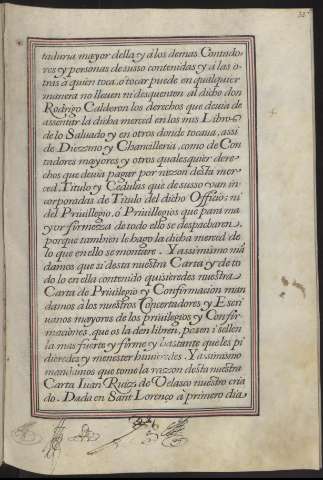 taduria mayor della, y a los demas Contado-
res y personas de suso contenidas, y a las o-
tras à quien toca, o tocar puede en qualquier
manera no lleuen ni desquenten al dicho don
Rodrigo Calderon los derechos que deuia de
assentar la dicha merced en los mis Libros
de lo Saluado y en otros donde tocaua, assi
de Diezmo y Chancilleria, como de Con-
tadores mayores y otros qualesquier dere-
chos que deuia pagar por razon desta mer-
ced, Titulo y Cedulas que de suso van in-
corporadas de Titulo del dicho Officio; ni
del Priuilegio, ò Priuilegios que para ma-
yor firmeza de todo ello se despacharen,
porque tambien le hago la dicha merced de
lo que en ello se montare. Y assimismo mã
damos que si desta nuestra Carta y de to-
do lo en ella contenido quisieredes nuestra
Carta de Priuilegio y Confirmacion man
damos a los nuestros Concertadores y Escri
uanos mayores de los priuilegios y Confir-
maciones, que os la den libren, pasen i sellen
la mas fuerte y firme y bastante que les pi
dieredes y menester huuieredes. Y assimismo
mandamos que tome la razon desta nuestra
Carta Iuan Ruiz de Velasco nuestro cria
do. Dada en Sant Lorenço à primero dia